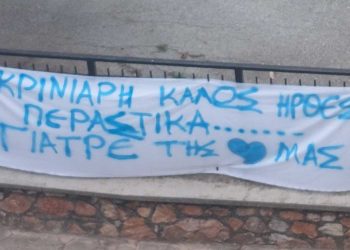 ΚΡΙΝΙΑΡΗ ΚΑΛΟΣ ΗΡΘΕΣ
ΠΕΡΑΣΤΙΚΑ.......
ΓΙΑΤΡΕ ΤΗΣ 💙 ΜΑΣ